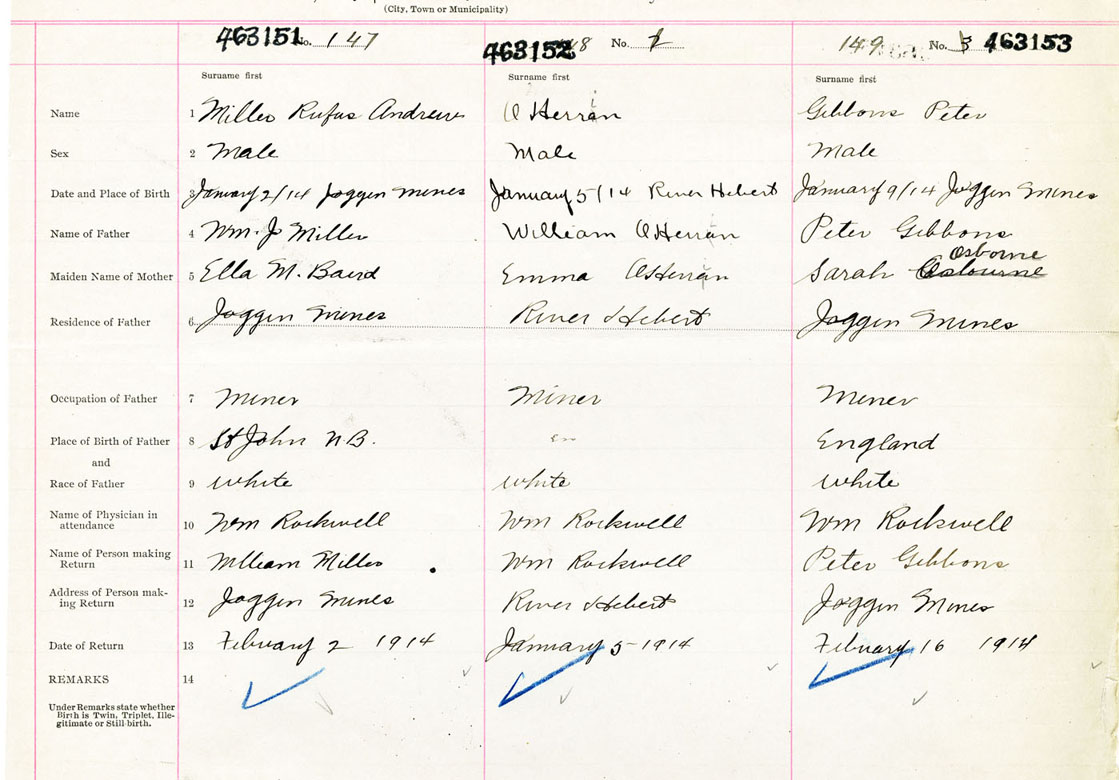 (City, Town or Municipality)
463151 No. 147
463152 48 No. 2
149 No. 3 463153
Surname first Surname first Surname first
Name 1 Miller Rufus Andrew O Herran Gibbons Peter
Sex 2 Male Male Male
Date and Place of Birth 3 January 2/14 Joggin Mines January 5/14 River Hebert January 9/14 Joggin Mines
Name of Father 4 Wm. J Miller William O Herran Peter Gibbons
Osborne
Maiden Name of Mother 5 Ella M. Baird Emma O Herran Sarah Osbourne
Residence of Father 6 Joggin Mines River Hebert Joggin Mines
Occupation of Father 7 Miner Miner Miner
Place of Birth of Father 8 St John N.B. En England
and
Race of Father 9 White White White
Name of Physician in
attendance 10 Wm Rockwell Wm Rockwell Wm Rockwell
Name of Person making
Return 11 William Miller Wm Rockwell Peter Gibbons
Address of Person mak-
ing Return 12 Joggin Mines River Hebert Joggin Mines
Date of Return 13 February 2 1914 January 5 1914 February 16 1914
REMARKS 14
Under Remarks state whether
Birth is Twin, Triplet, Ille-
gitimate or Still-birth.